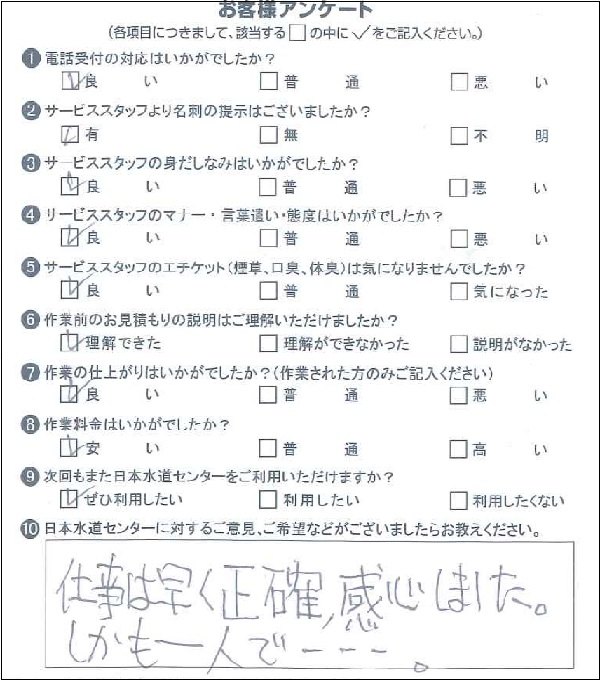 お客様アンケート
(各項目につきまして、該当する□の中に✓をご記入ください。)
❶電話受付の対応はいかがでしたか?
☑良い □普通 □悪い
❷サービススタッフより名刺の提示はございましたか?
☑有 □無 □不明
❸サービススタッフの身だしなみはいかがでしたか?
☑良い □普通 □悪い
❹サービススタッフのマナー・言葉遣い・態度はいかがでしたか?
☑良い □普通 □悪い
❺サービススタッフのエチケット(煙草、口臭、体臭)は気になりませんでしたか?
☑良い □普通 □気になった
❻作業前のお見積もりの説明はご理解いただけましたか?
☑理解できた □理解ができなかった □説明がなかった
❼作業の仕上がりはいかがでしたか?(作業された方のみご記入ください)
☑良い □普通 □悪い
❽作業料金はいかがでしたか?
☑安い □普通 □高い
❾次回もまた日本水道センターをご利用いただけますか?
☑ぜひ利用したい □利用したい □利用したくない
❿日本水道センターに対するご意見、ご希望などがございましたらお教えください。
仕事は早く正確、感心しました。
しかも一人で---。